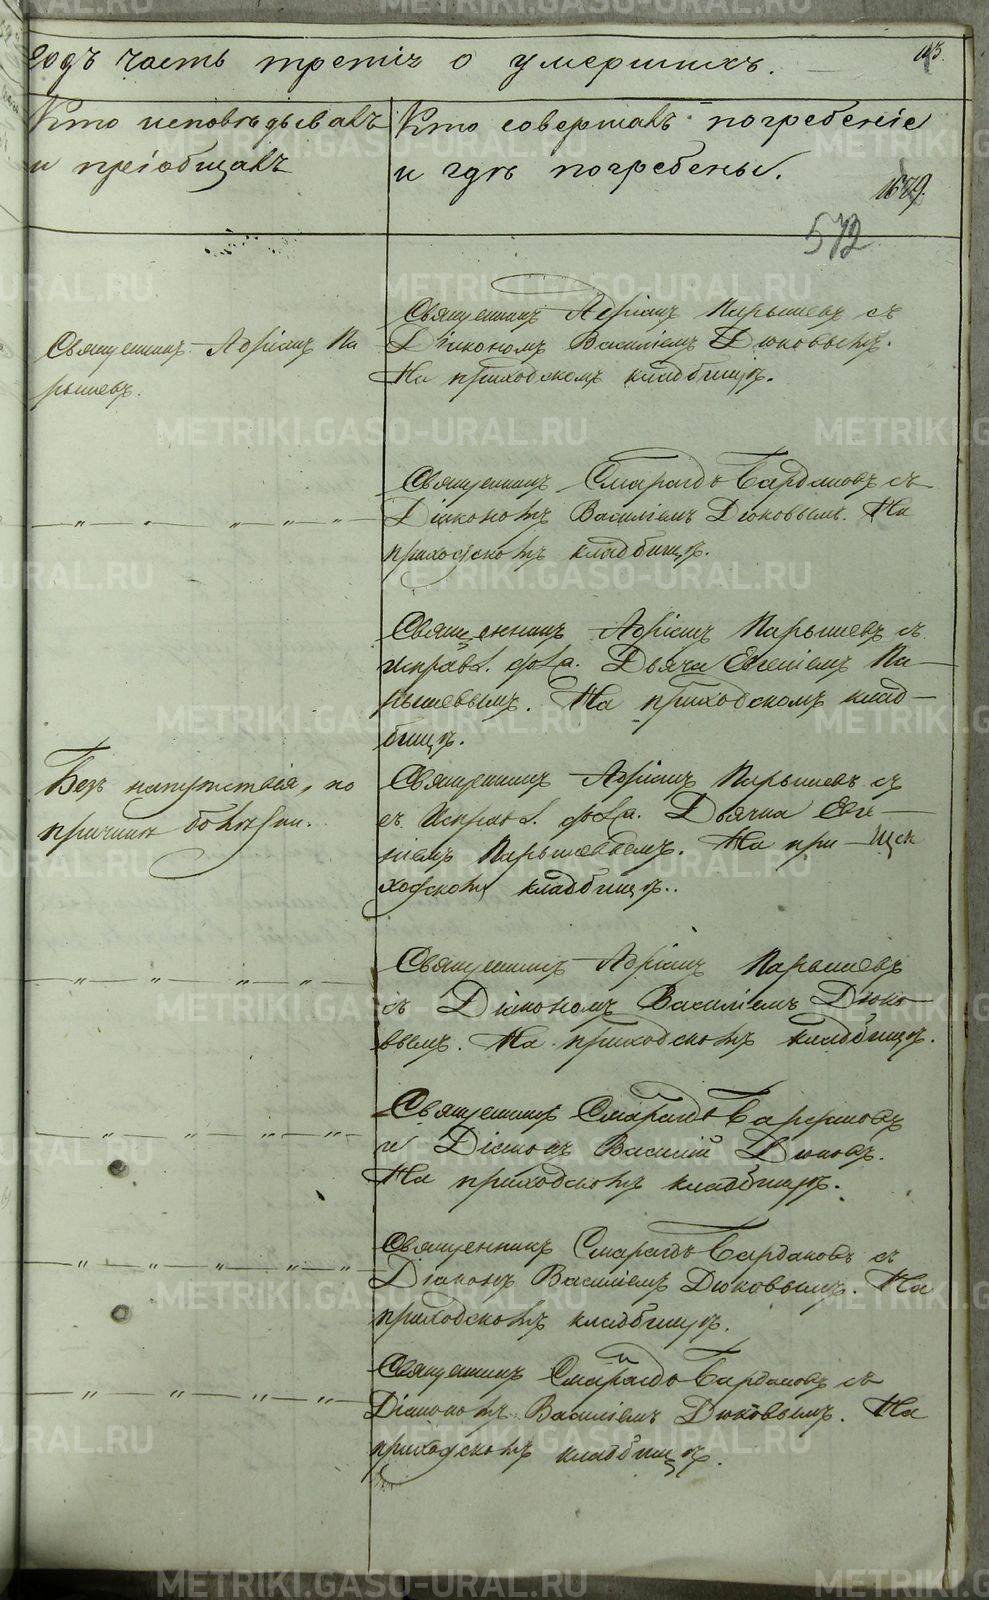 годъ часть третія о умершихъ.
Кто исповѣдывалъ
и пріобщалъ
Кто совершалъ погребеніе
и гдѣ погребены.
572
Священникъ Адріанъ Па
рышевъ.
Священникъ Адріанъ Парышевъ съ
Діакономъ Василіемъ Дюковымъ.
На приходскомъ кладбищѣ.
— „ — „ — „ — „ —
Священникъ Смарагдъ Бардаковъ съ
Діакономъ Василіемъ Дюковымъ. На
приходскомъ кладбищѣ.
Священникъ Адріанъ Парышевъ съ
исправл. долж. Дьячка Евгеніемъ Па-
рышевымъ. На приходскомъ клад-
бищѣ.
Безъ напутствія, по
причинѣ болѣзни.
Священникъ Адріанъ Парышевъ съ
съ Исправл. долж. Дьячка Евге-
ніемъ Парышевымъ. На при-
ходскомъ кладбищѣ.
— „ — „ — „ — „ —
Священникъ Адріанъ Парышевъ
съ Діакономъ Василіемъ Дюко-
вымъ. На приходскомъ кладбищѣ.
— „ — „ — „ — „ —
Священникъ Смарагдъ Бардаковъ
и Діаконъ Василій Дюковъ.
На приходскомъ кладбищѣ.
— „ — „ — „ — „ —
Священникъ Смарагдъ Бардаковъ съ
Діакономъ Василіемъ Дюковымъ. На
приходскомъ кладбищѣ.
— „ — „ — „ — „ —
Священникъ Смарагдъ Бардаковъ съ
Діакономъ Василіемъ Дюковымъ. На
приходскомъ кладбищѣ.
METRIKI.GASO-URAL.RU